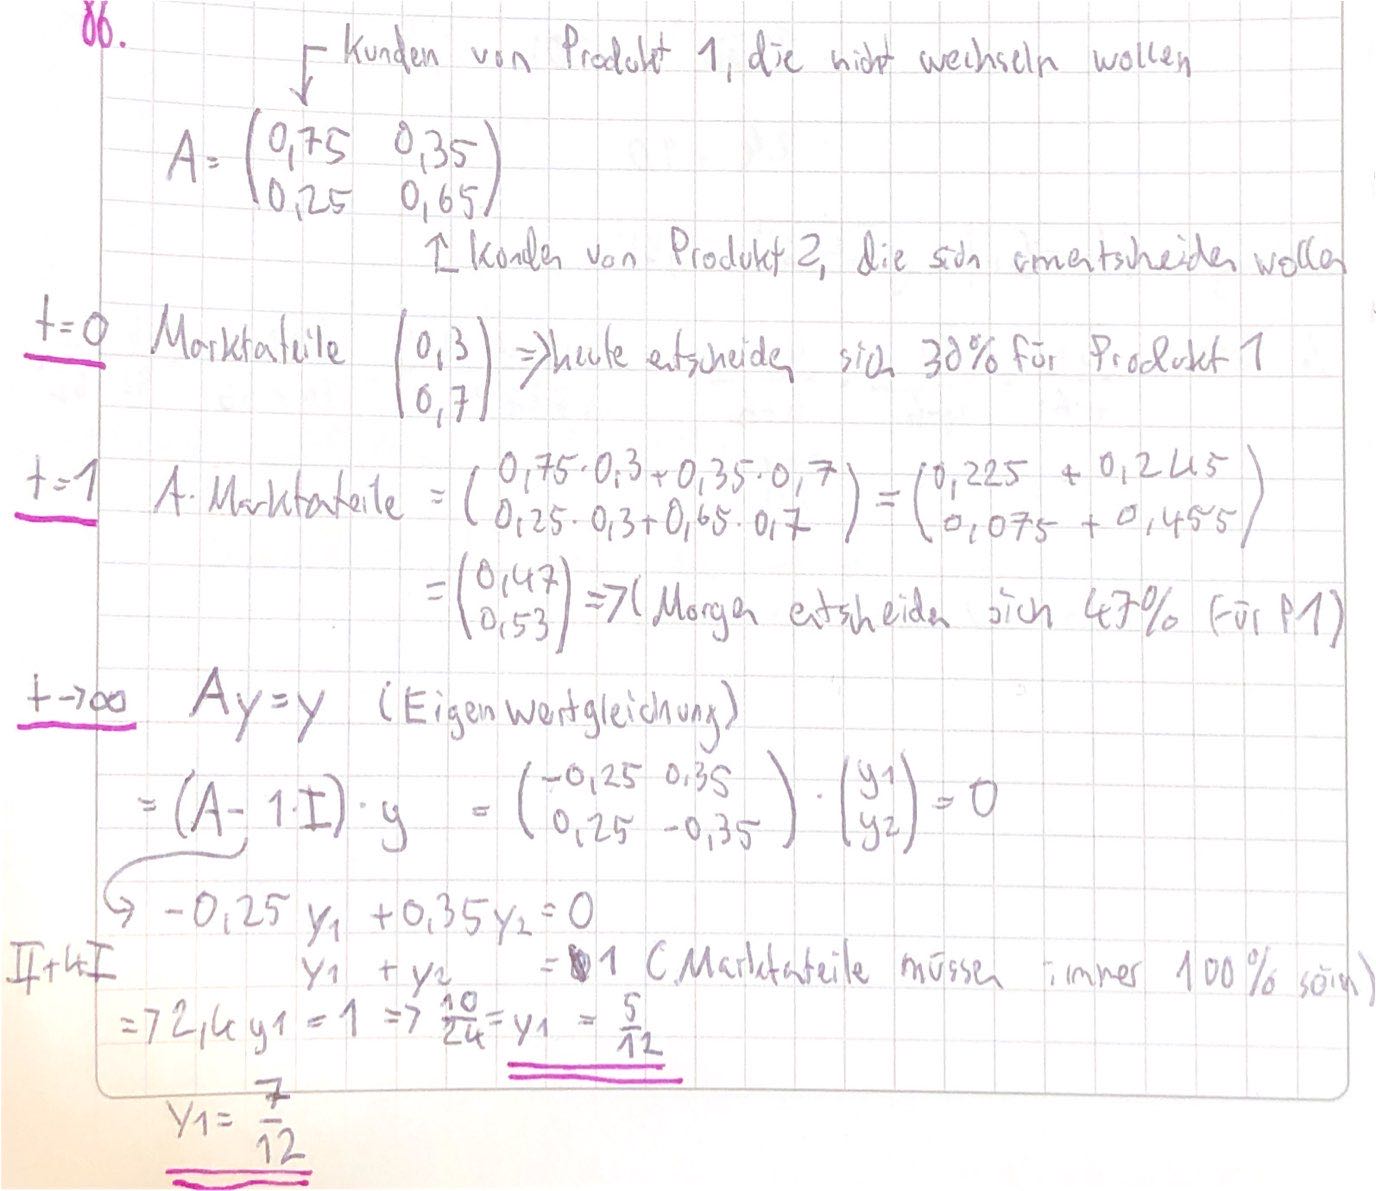 86.
Kunden von Produkt 1, die nicht wechseln wollen
A = (0,75 0,35
0,25 0,65)
↑ Kunden von Produkt 2, die sich umentscheiden wollen
t=0 Marktateile (0,3 0,7) => heute entscheiden sich 30% für Produkt 1
t=1 A · Marktateile = (0,75·0,3+0,35·0,7 0,25·0,3+0,65·0,7) = (0,225 + 0,245 0,075 + 0,455)
= (0,47 0,53) => (Morgen entscheiden sich 47% für P1)
t→∞ Ay=y (Eigenwertgleichung)
= (A - 1·I)·y = (-0,25 0,35 0,25 -0,35) · (y1 y2) = 0
-0,25 y1 + 0,35 y2 = 0
II+4I y1 + y2 = 1 (Marktateile müssen immer 100% sein)
=> 2,4 y1 = 1 => 10/24 = y1 = 5/12
y1 = 7/12